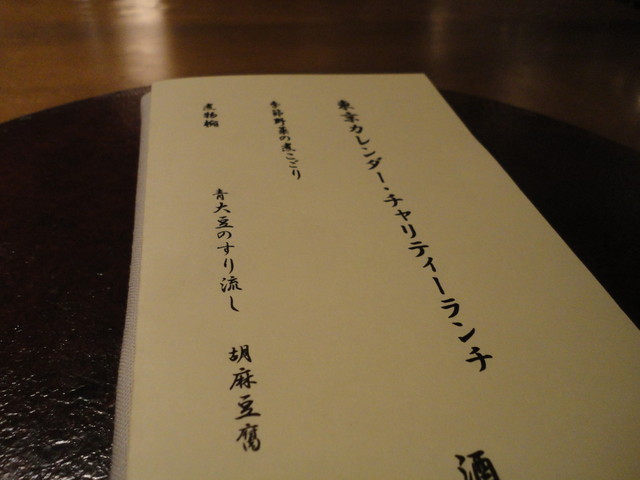 東京カレンダー・チャリティーランチ
酒
季節野菜の煮こごり
煮物椀
青大豆のすり流し
胡麻豆腐